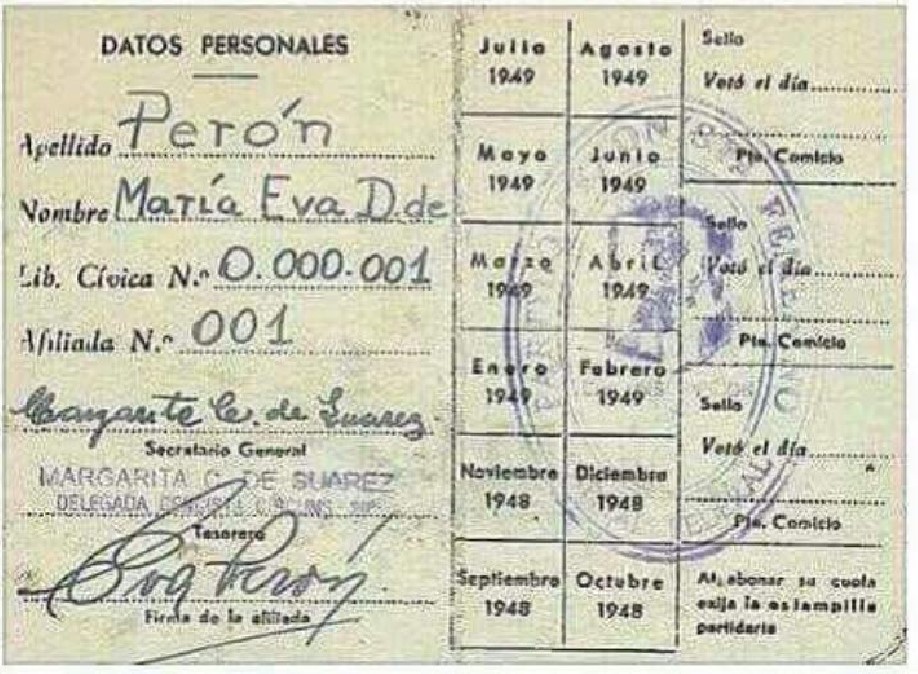 DATOS PERSONALES
Apellido Perón
Nombre María Eva D. de
Lib. Cívica N.º 0.000.001
Afiliada N.º 001
Margarita C. de Suarez
Secretario General
MARGARITA C. DE SUAREZ
DELEGADA
Tesorero
Eva Perón
Firma de la afiliada
Julio 1949
Agosto 1949
Mayo 1949
Junio 1949
Marzo 1949
Abril 1949
Enero 1949
Febrero 1949
Noviembre 1948
Diciembre 1948
Septiembre 1948
Octubre 1948
Sello
Votó el día
Pte. Comicio
Sello
Votó el día
Pte. Comicio
Sello
Votó el día
Pte. Comicio
Al abonar su cuota
exija la estampilla
partidaria
PARTIDO PERONISTA FEMENINO